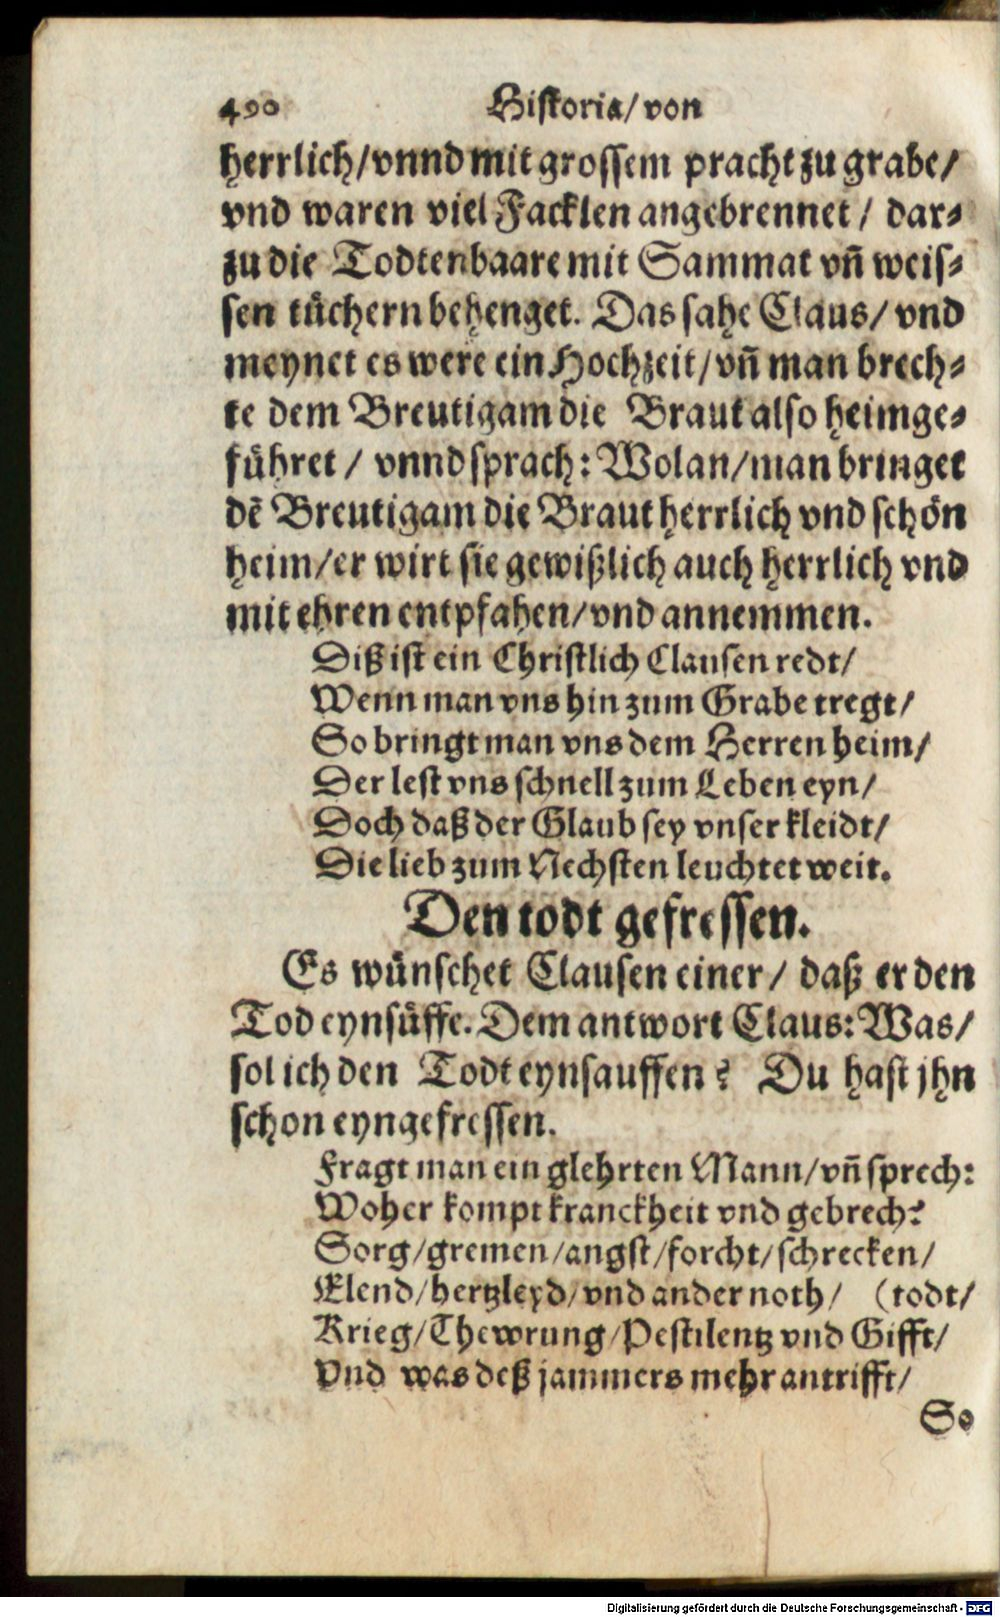 490 Historia/ von
herrlich/ vnnd mit grossem pracht zu grabe/
vnd waren viel Facklen angebrennet/ dar⸗
zu die Todtenbaare mit Sammat vñ weis⸗
sen tuͤchern behenget. Das sahe Claus/ vnd
meynet es were ein Hochzeit/ vñ man brech⸗
te dem Breutigam die Braut also heimge⸗
fuͤhret/ vnnd sprach: Wolan/ man bringet
dẽ Breutigam die Braut herrlich vnd schoͤn
heim/ er wirt sie gewißlich auch herrlich vnd
mit ehren entpfahen/ vnd annemmen.
Diß ist ein Christlich Clausen redt/
Wenn man vns hin zum Grabe tregt/
So bringt man vns dem Herren heim/
Der lest vns schnell zum Leben eyn/
Doch daß der Glaub sey vnser kleidt/
Die lieb zum Nechsten leuchtet weit.
Den todt gefressen.
Es wuͤnschet Clausen einer/ daß er den
Tod eynsuͤffe. Dem antwort Claus: Was/
sol ich den Todt eynsauffen? Du hast jhn
schon eyngefressen.
Fragt man ein glehrten Mann/ vñ sprech:
Woher kompt kranckheit vnd gebrech?
Sorg/ gremen/ angst/ forcht/ schrecken/
Elend/ hertzleyd/ vnd ander noth/ (todt/
Krieg/ Thewrung/ Pestilentz vnd Gifft/
Vnd was deß jammers mehr antrifft/
So
Digitalisierung gefördert durch die Deutsche Forschungsgemeinschaft - DFG